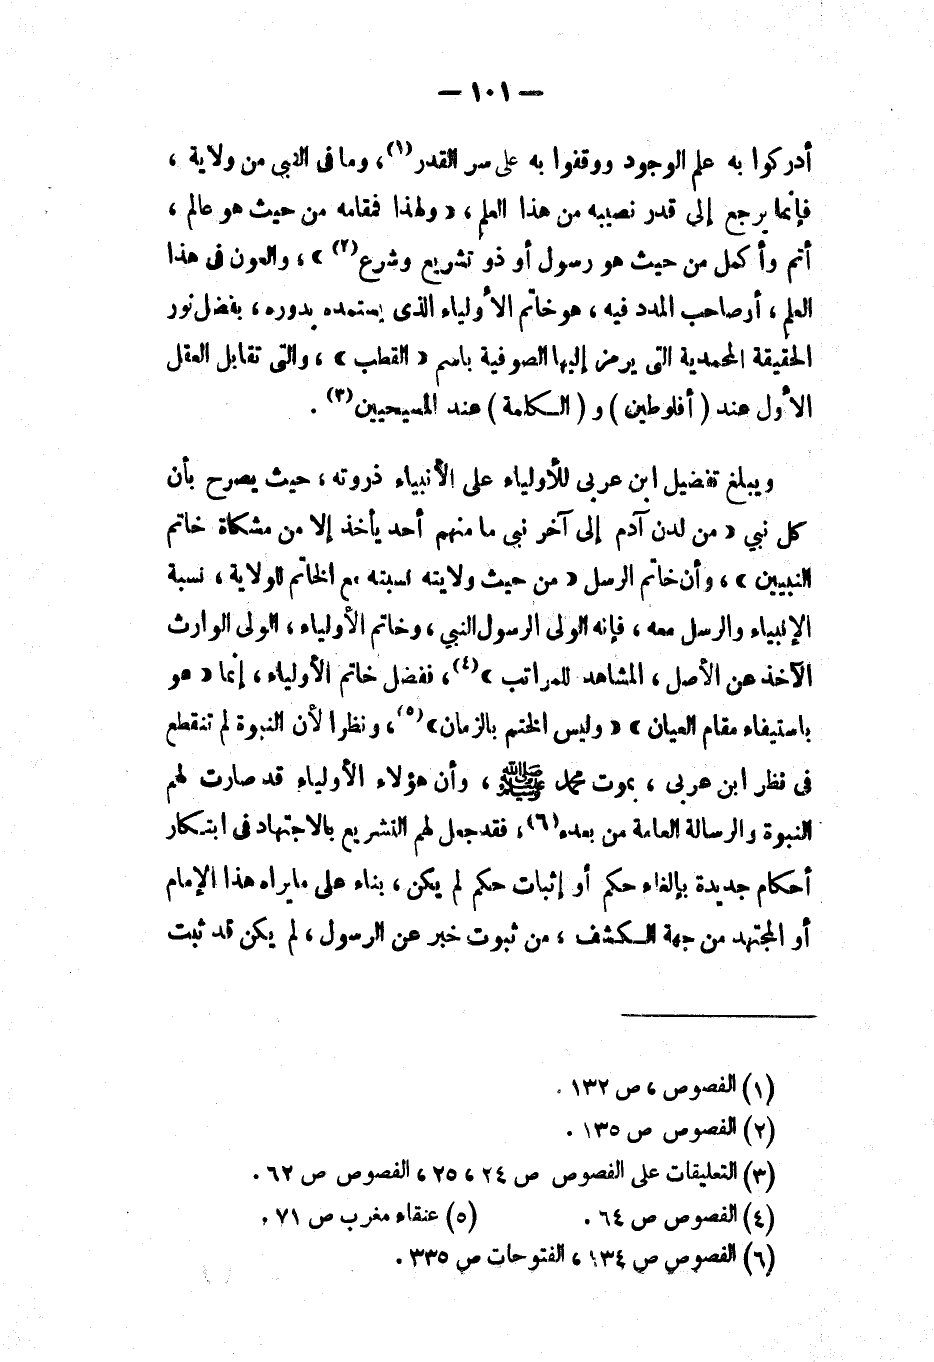 — ١٠١ —
أدركوا به علم الوجود ووقفوا به على سر القدر(١)، وما فى النبي من ولاية ،
فإنما يرجع إلى قدر نصيبه من هذا العلم ، « ولهذا فمقامه من حيث هو عالم ،
أتم وأكمل من حيث هو رسول أو ذو تشريع وشرع(٢) » ، والعون فى هذا
العلم ، أوصاحب المدد فيه ، هو خاتم الأولياء الذى يستمده بدوره ، بفضل نور
الحقيقة المحمدية التى يرمز إليها الصوفية باسم « القطب » ، والتى تقابل العقل
الأول عند ( أفلوطين ) و ( الكلمة ) عند المسيحيين(٣) .
ويبلغ تفضيل ابن عربى للأولياء على الأنبياء ذروته ، حيث يصرح بأن
كل نبي « من لدن آدم إلى آخر نبى ما منهم أحد يأخذ إلا من مشكاة خاتم
النبيين » ، وأن خاتم الرسل « من حيث ولايته نسبته مع الخاتم للولاية ، نسبة
الإنبياء والرسل معه ، فإنه الولى الرسول النبي ، وخاتم الأولياء ، الولى الوارث
الآخذ عن الأصل ، المشاهد للمراتب »(٤)، ففضل خاتم الأولياء ، إنما « هو
باستيفاء مقام العيان » « وليس الختم بالزمان»(٥)، ونظرا لأن النبوة لم تنقطع
فى نظر ابن عربى ، بموت محمد ﷺ ، وأن هؤلاء الأولياء قد صارت لهم
النبوة والرسالة العامة من بعده(٦)، فقد جعل لهم التشريع بالاجتهاد فى ابتكار
أحكام جديدة بإلغاء حكم أو إثبات حكم لم يكن ، بناء على مايراه هذا الإمام
أو المجتهد من جهة الكشف ، من ثبوت خبر عن الرسول ، لم يكن قد ثبت
(١) الفصوص ، ص ١٣٢ .
(٢) الفصوص ص ١٣٥ .
(٣) التعليقات على الفصوص ص ٢٤ ، ٢٥ ، الفصوص ص ٦٢ .
(٤) الفصوص ص ٦٤ . (٥) عنقاء مغرب ص ٧١ .
(٦) الفصوص ص ١٣٤ ، الفتوحات ص ٣٣٥ .